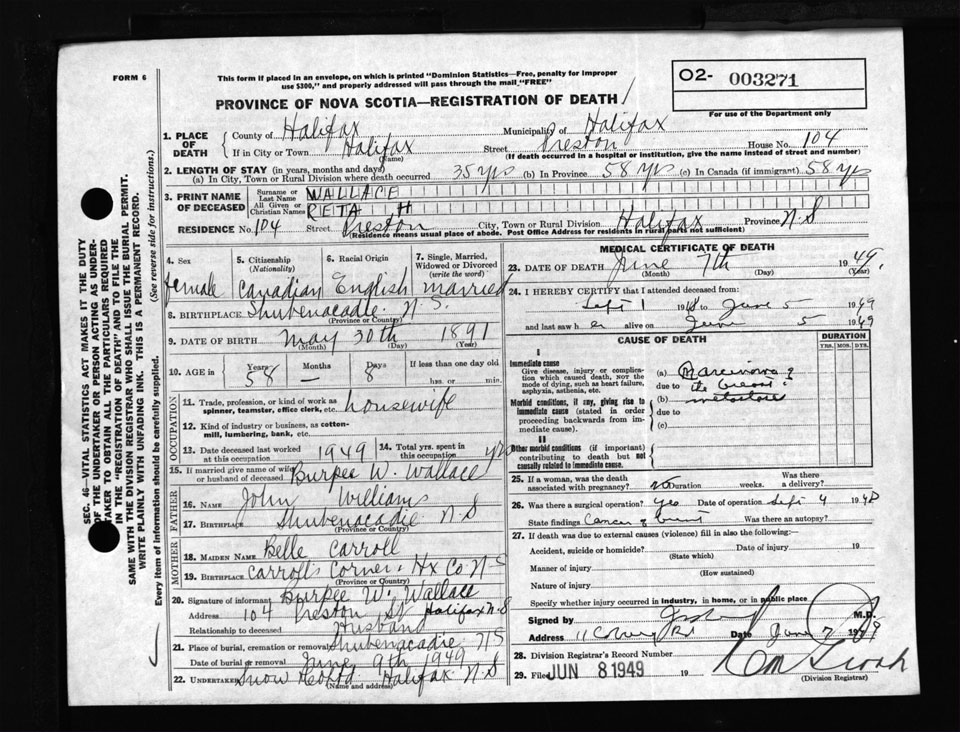 FORM 6
This form if placed in an envelope, on which is printed "Dominion Statistics—Free, penalty for improper
use $300," and properly addressed will pass through the mail "FREE"
O2- 003271
For use of the Department only
PROVINCE OF NOVA SCOTIA—REGISTRATION OF DEATH
1. PLACE OF DEATH
County of Halifax Municipality of Halifax
If in City or Town Halifax (Name) Street Preston House No. 104
(If death occurred in a hospital or institution, give the name instead of street and number)
2. LENGTH OF STAY (in years, months and days)
(a) In City, Town or Rural Division where death occurred 35 yrs (b) In Province 58 yrs (c) In Canada (if immigrant) 58 yrs
3. PRINT NAME OF DECEASED
Surname or Last Name WALLACE
All Given or Christian Names RETA H
RESIDENCE No. 104 Street Preston City, Town or Rural Division Halifax Province N.S
(Residence means usual place of abode. Post Office Address for residents in rural parts not sufficient)
4. Sex female
5. Citizenship (Nationality) Canadian
6. Racial Origin English
7. Single, Married, Widowed or Divorced (write the word) married
8. BIRTHPLACE Shubenacadie N.S.
(Province or Country)
9. DATE OF BIRTH May 30th 1891
(Month) (Day) (Year)
10. AGE in Years 58 Months — Days 8 If less than one day old hrs. or min.
OCCUPATION
11. Trade, profession, or kind of work as spinner, teamster, office clerk, etc. housewife
12. Kind of industry or business, as cotton-mill, lumbering, bank, etc.
13. Date deceased last worked at this occupation 1949
14. Total yrs. spent in this occupation
15. If married give name of wife or husband of deceased Burpee W. Wallace
FATHER
16. NAME John Williams
17. BIRTHPLACE Shubenacadie N.S
(Province or Country)
MOTHER
18. MAIDEN NAME Belle Carroll
19. BIRTHPLACE Carrolls Corner Hx Co N S
(Province or Country)
20. Signature of informant Burpee W. Wallace
Address 104 Preston St Halifax N.S
Relationship to deceased Husband
21. Place of burial, cremation or removal Shubenacadie N S
Date of burial or removal June 9th 1949
22. UNDERTAKER Snow Halifax N.S
(Name and address)
MEDICAL CERTIFICATE OF DEATH
23. DATE OF DEATH June 7th 1949
(Month) (Day) (Year)
24. I HEREBY CERTIFY that I attended deceased from:
Sept 1 1948 to June 5 1949
and last saw h er alive on June 5 1949
CAUSE OF DEATH
DURATION
YRS. MOS. DYS.
I
Immediate cause
Give disease, injury or complication which caused death, not the mode of dying, such as heart failure, asphyxia, asthenia, etc.
(a)
due to
Morbid conditions, if any, giving rise to immediate cause (stated in order proceeding backwards from immediate cause).
(b)
due to
(c)
II
Other morbid conditions (if important) contributing to death but not causally related to immediate cause.
25. If a woman, was the death associated with pregnancy? no Duration weeks. Was there a delivery?
26. Was there a surgical operation? yes Date of operation Sept 9 1948
State findings Cancer of breast Was there an autopsy?
27. If death was due to external causes (violence) fill in also the following:
Accident, suicide or homicide? Date of injury 19
(State which)
Manner of injury
(How sustained)
Nature of injury
Specify whether injury occurred in industry, in home, or in public place
Signed by M.D.
Address Date June 7 1949
28. Division Registrar's Record Number
29. Filed JUN 8 1949 19
(Division Registrar)
SEC. 46—VITAL STATISTICS ACT MAKES IT THE DUTY
OF THE UNDERTAKER OR PERSON ACTING AS UNDER-
TAKER TO OBTAIN ALL THE PARTICULARS REQUIRED
IN THE "REGISTRATION OF DEATH" AND TO FILE THE
SAME WITH THE DIVISION REGISTRAR WHO SHALL ISSUE THE BURIAL PERMIT.
WRITE PLAINLY WITH UNFADING INK. THIS IS A PERMANENT RECORD.
Every item of information should be carefully supplied. (See reverse side for instructions.)